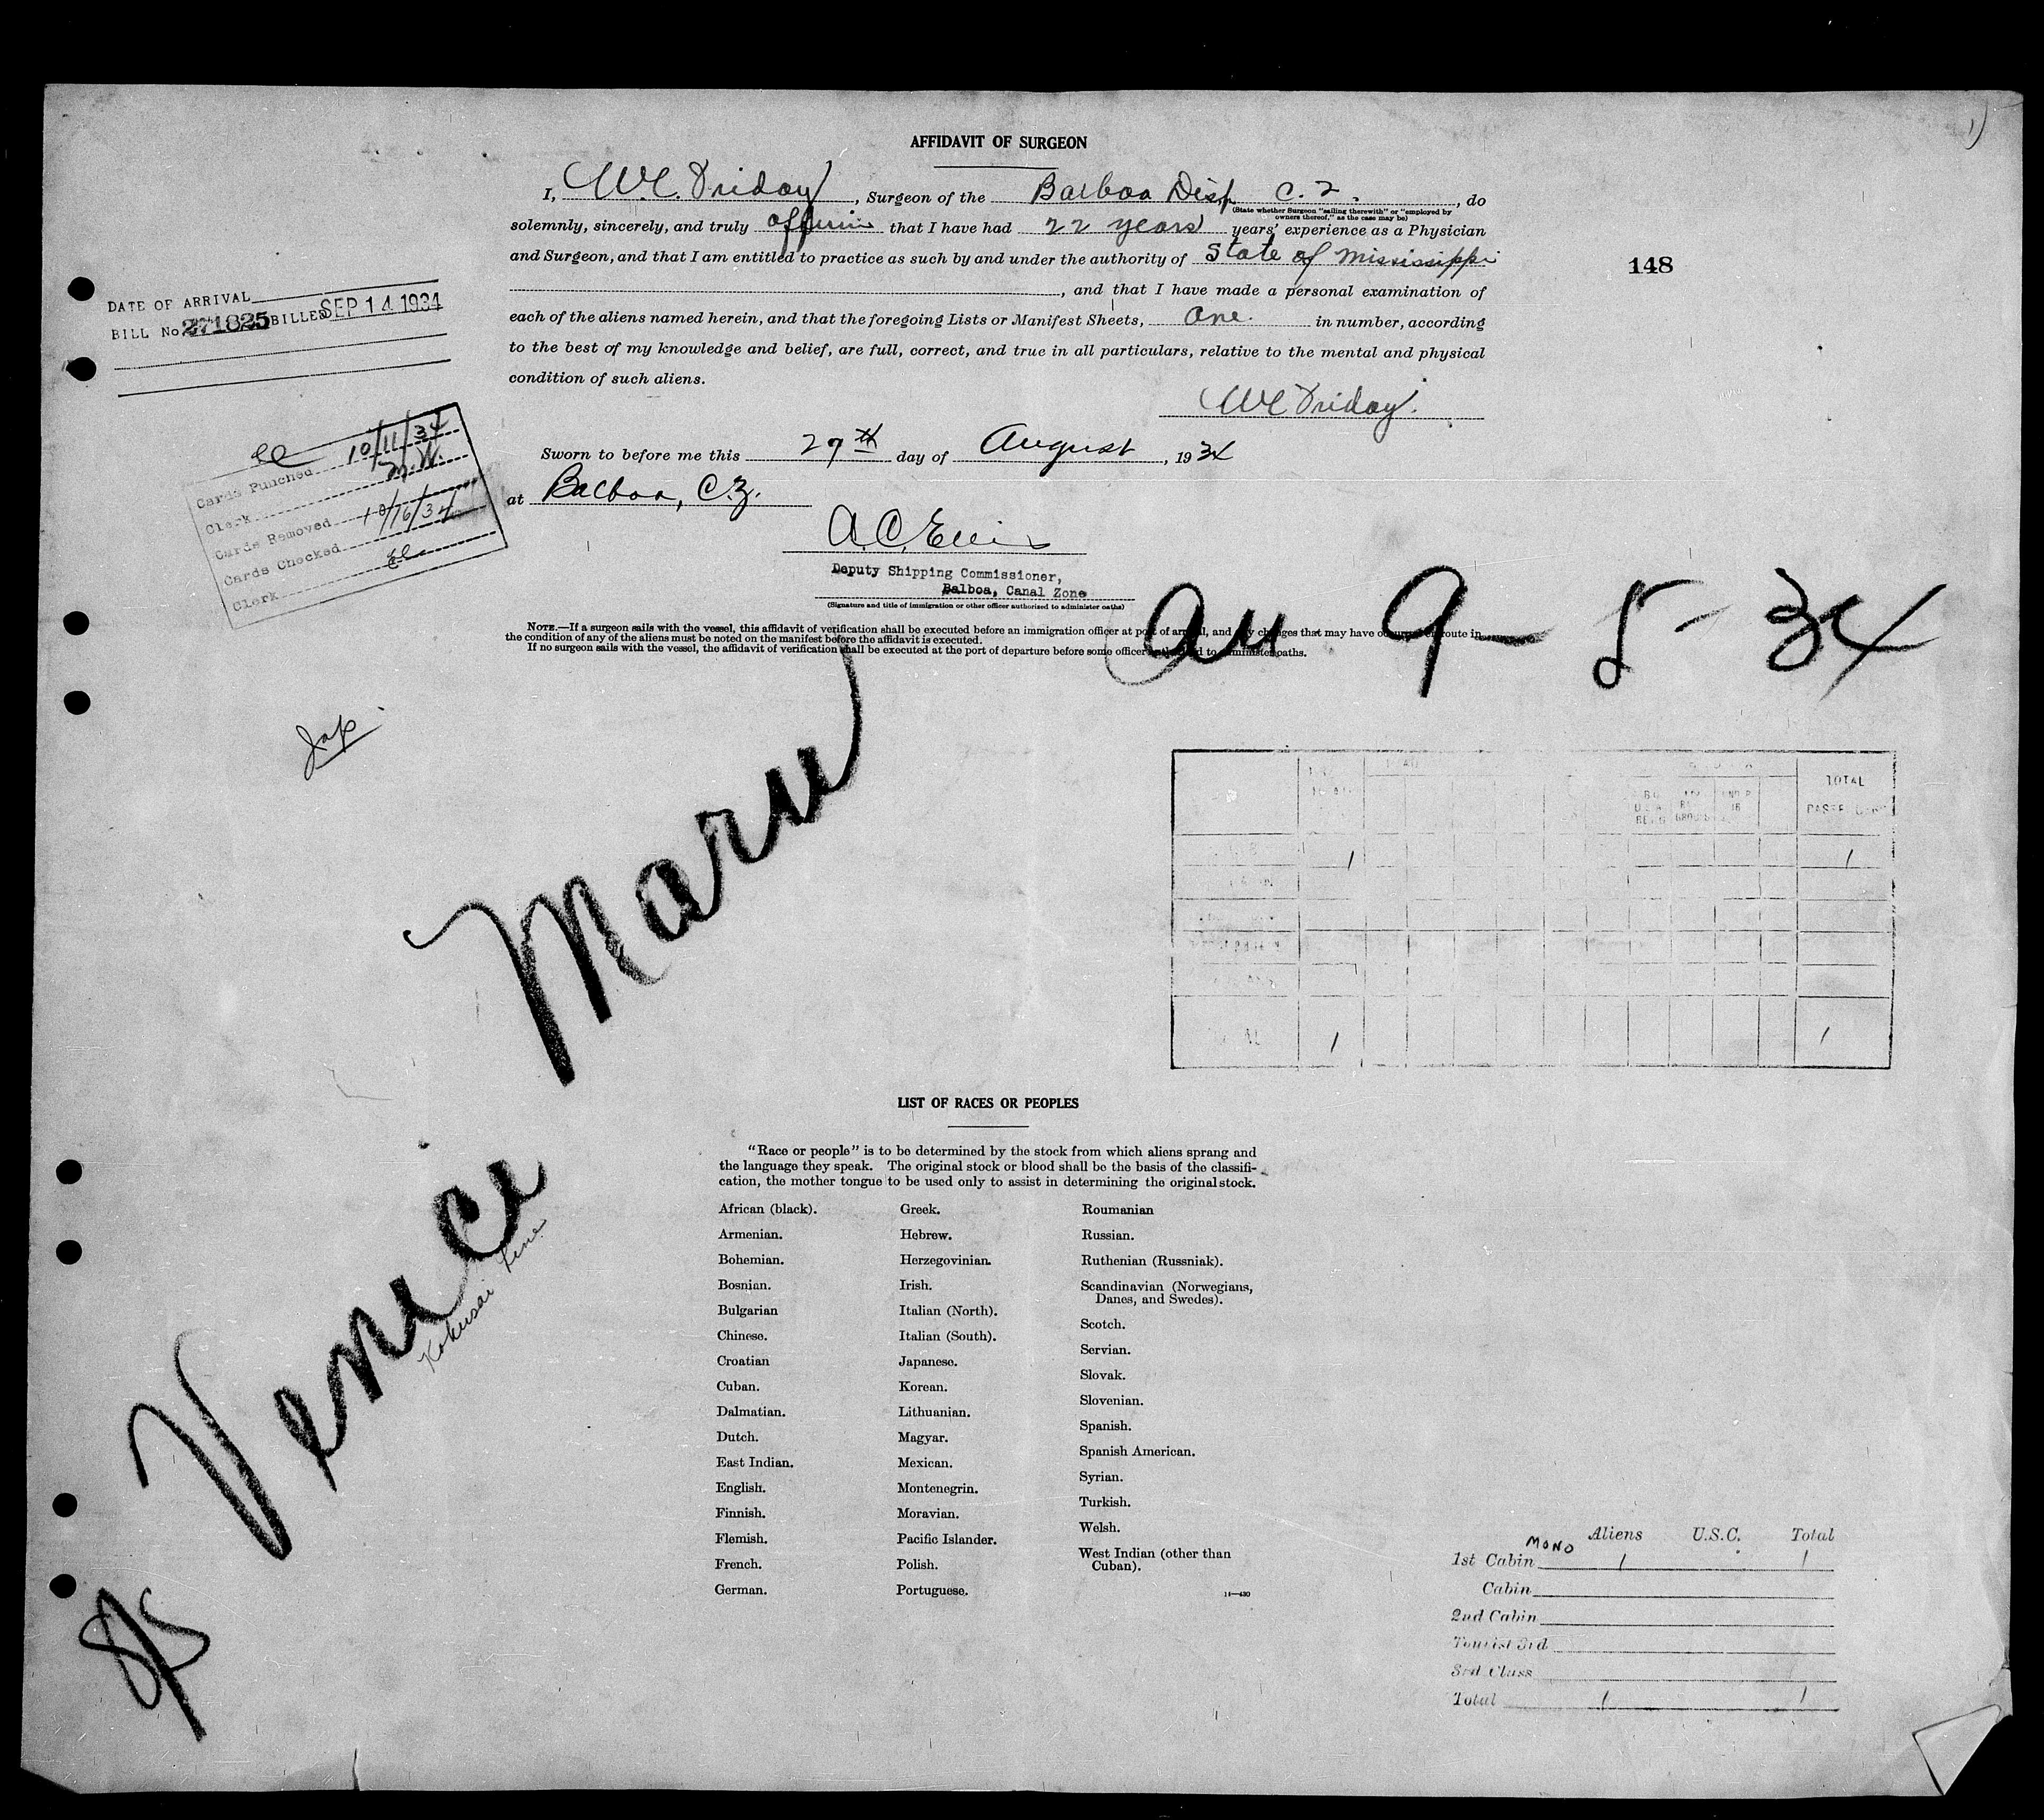 1)
AFFIDAVIT OF SURGEON
I, W.C. Friday, Surgeon of the Balboa Disp. C.Z., do
(State whether Surgeon "sailing therewith" or "employed by
owners thereof," as the case may be)
solemnly, sincerely, and truly affirm that I have had 22 years years' experience as a Physician
and Surgeon, and that I am entitled to practice as such by and under the authority of State of Mississippi
, and that I have made a personal examination of
each of the aliens named herein, and that the foregoing Lists or Manifest Sheets, One in number, according
to the best of my knowledge and belief, are full, correct, and true in all particulars, relative to the mental and physical
condition of such aliens.
WC Friday.
Sworn to before me this 27th day of August, 1934
at Balboa, C.Z.
A.C. Ellis
Deputy Shipping Commissioner,
Balboa, Canal Zone
(Signature and title of immigration or other officer authorized to administer oaths)
NOTE.—If a surgeon sails with the vessel, this affidavit of verification shall be executed before an immigration officer at port of arrival, and any changes that may have occurred en route in
the condition of any of the aliens must be noted on the manifest before the affidavit is executed.
If no surgeon sails with the vessel, the affidavit of verification shall be executed at the port of departure before some officer authorized to administer oaths.
148
DATE OF ARRIVAL
BILL No. 271825 BILLED SEP 14 1934
Cards Punched 10/11/34
Clerk M.W.
Cards Removed
Cards Checked 10/16/34
Clerk
9-5-34
Jap
Venice Maru
Kokusai Line
TOTAL
1 1
1 1
LIST OF RACES OR PEOPLES
"Race or people" is to be determined by the stock from which aliens sprang and
the language they speak. The original stock or blood shall be the basis of the classifi-
cation, the mother tongue to be used only to assist in determining the original stock.
African (black).
Armenian.
Bohemian.
Bosnian.
Bulgarian
Chinese.
Croatian
Cuban.
Dalmatian.
Dutch.
East Indian.
English.
Finnish.
Flemish.
French.
German.
Greek.
Hebrew.
Herzegovinian.
Irish.
Italian (North).
Italian (South).
Japanese.
Korean.
Lithuanian.
Magyar.
Mexican.
Montenegrin.
Moravian.
Pacific Islander.
Polish.
Portuguese.
Roumanian
Russian.
Ruthenian (Russniak).
Scandinavian (Norwegians,
Danes, and Swedes).
Scotch.
Servian.
Slovak.
Slovenian.
Spanish.
Spanish American.
Syrian.
Turkish.
Welsh.
West Indian (other than
Cuban).
14—430
Aliens U.S.C. Total
MONO
1st Cabin 1 1
Cabin
2nd Cabin
Tourist 3rd
3rd Class
Total 1 1